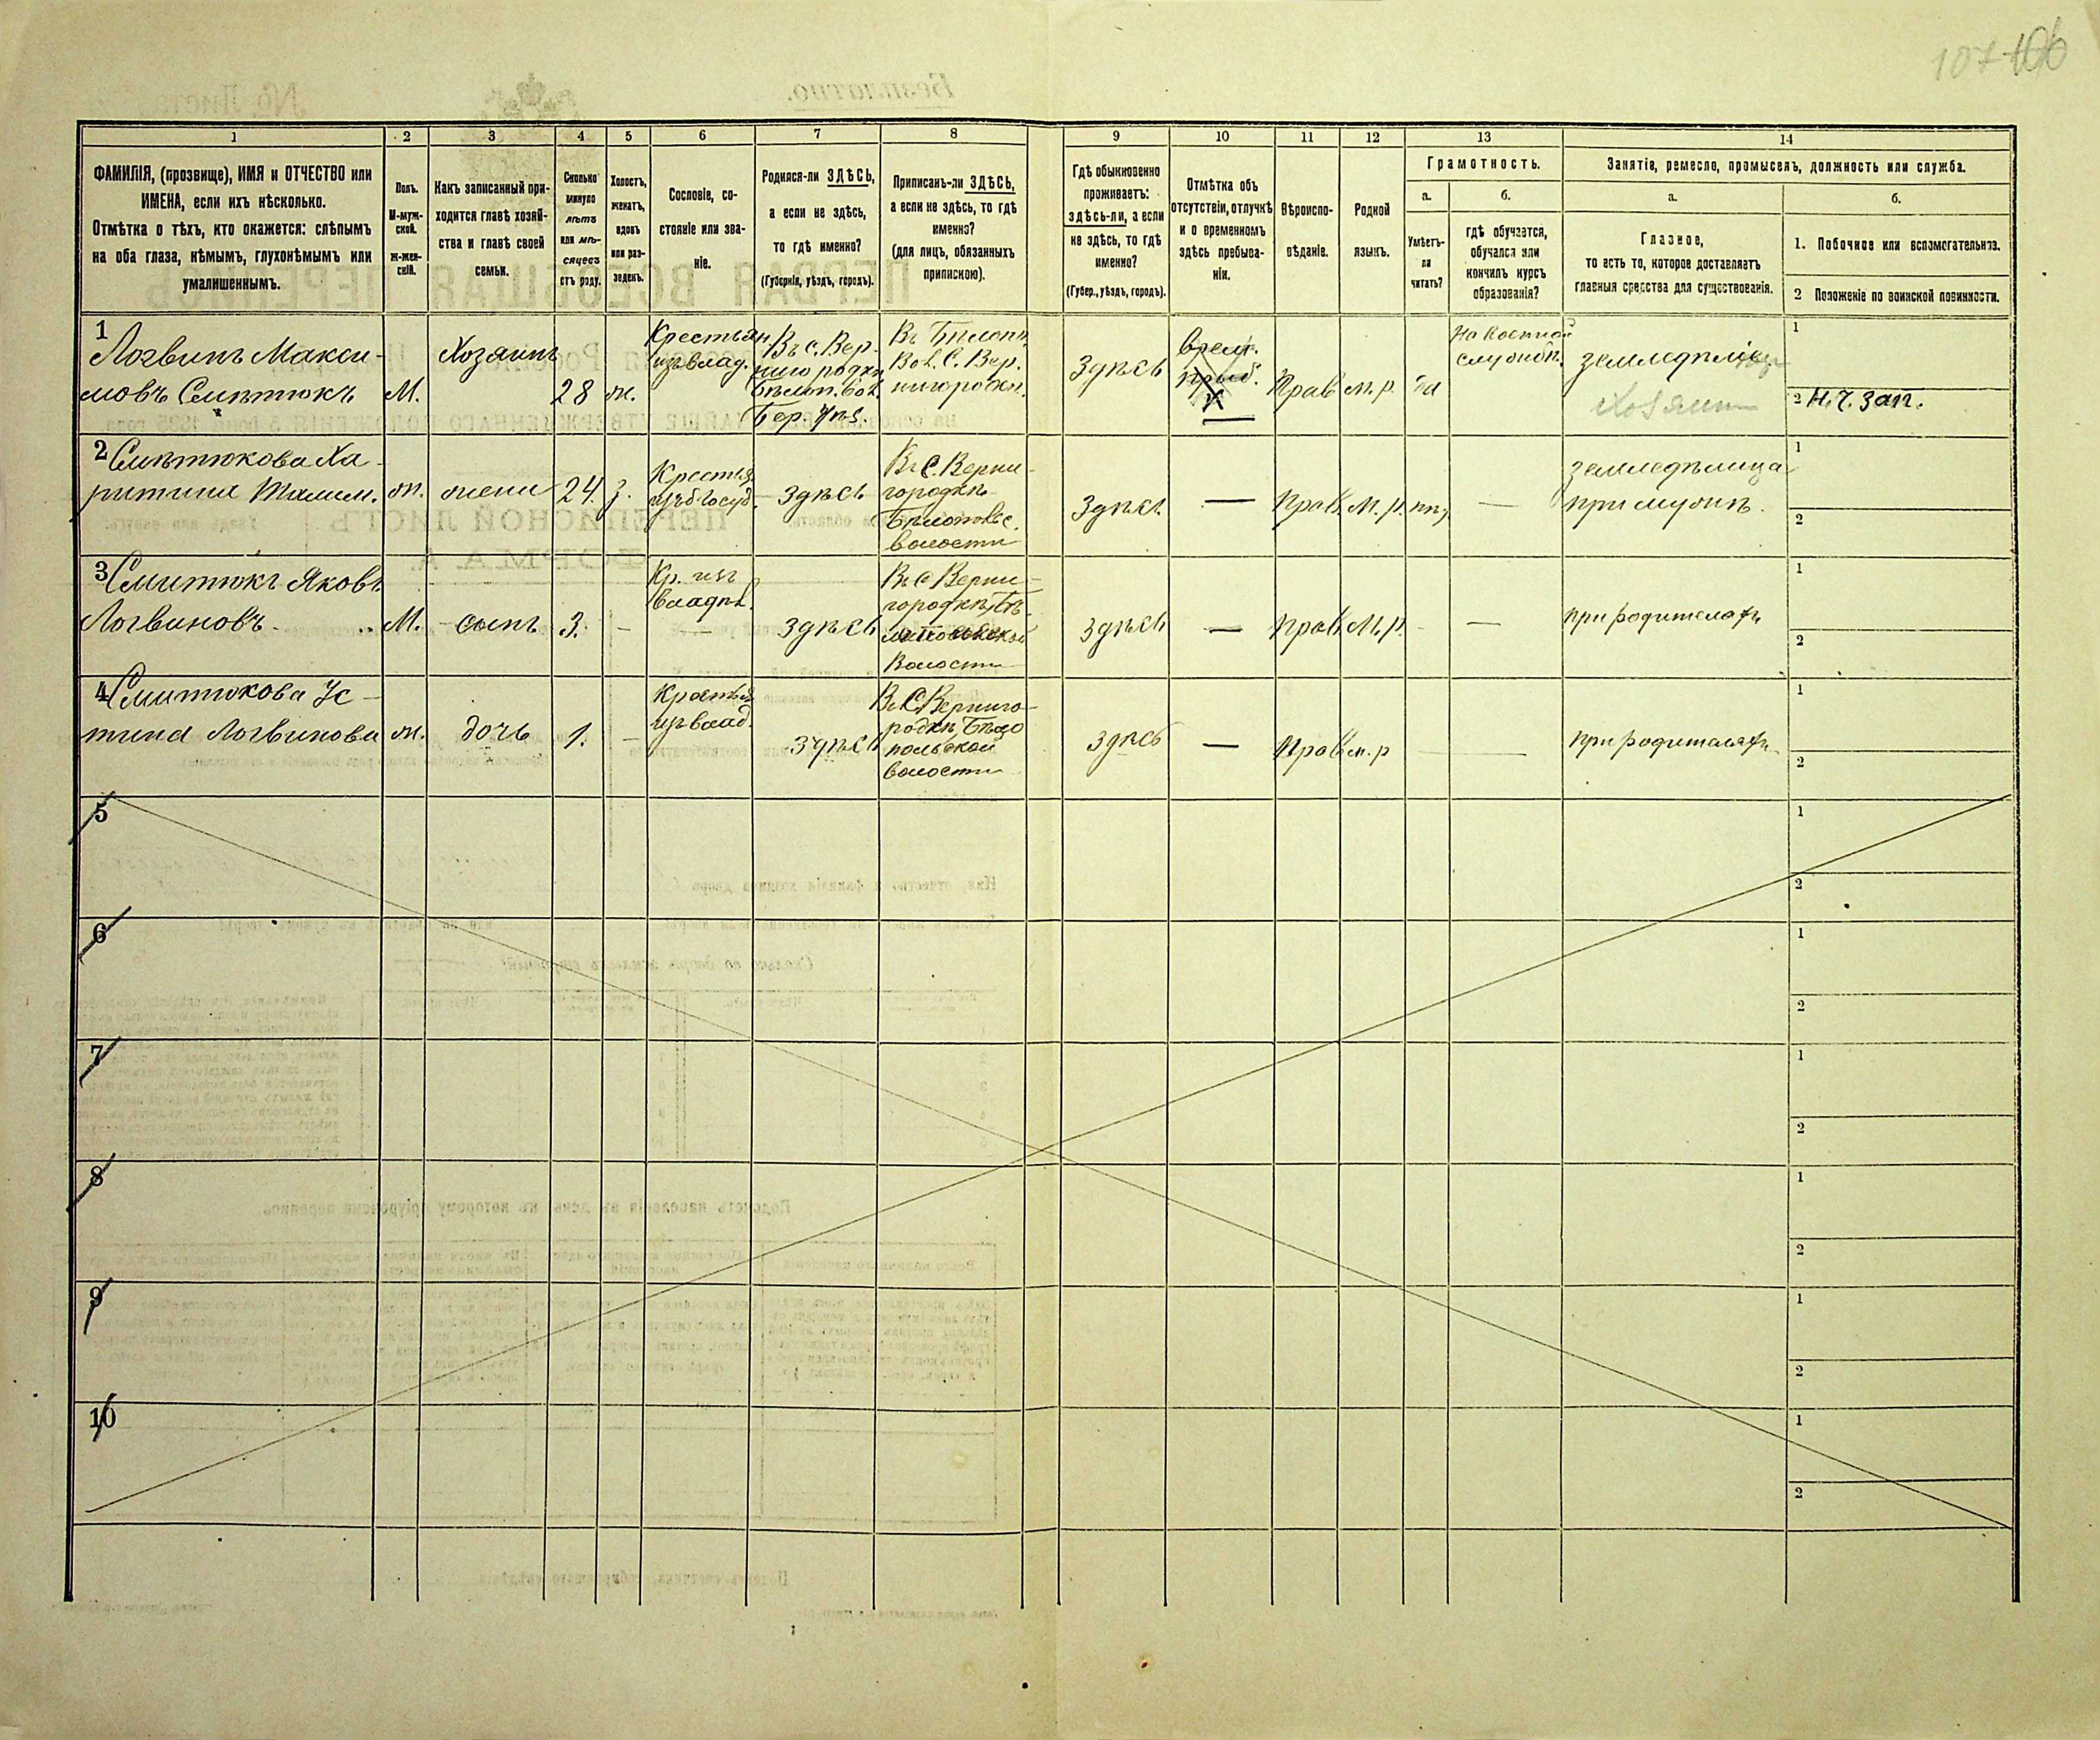 107 106
1
2
3
4
5
6
7
8
9
10
11
12
13
14
ФАМИЛІЯ, (прозвище), ИМЯ и ОТЧЕСТВО или
ИМЕНА, если ихъ нѣсколько.
Отмѣтка о тѣхъ, кто окажется: слѣпымъ
на оба глаза, нѣмымъ, глухонѣмымъ или
умалишеннымъ.
Полъ.
М-муж-
ской.
Ж-жен-
скій.
Какъ записанный при-
ходится главѣ хозяй-
ства и главѣ своей
семьи.
Сколько
минуло
лѣтъ
или мѣ-
сяцевъ
отъ роду.
Холостъ,
женатъ,
вдовъ
или раз-
веденъ.
Сословіе, со-
стояніе или зва-
ніе.
Родился-ли ЗДѢСЬ,
а если не здѣсь,
то гдѣ именно?
(Губернія, уѣздъ, городъ).
Приписанъ-ли ЗДѢСЬ,
а если не здѣсь, то гдѣ
именно?
(для лицъ, обязанныхъ
припискою).
Гдѣ обыкновенно
проживаетъ:
здѣсь-ли, а если
не здѣсь, то гдѣ
именно?
(Губер., уѣздъ, городъ).
Отмѣтка объ
отсутствіи, отлучкѣ
и о временномъ
здѣсь пребыва-
ніи.
Вѣроиспо-
вѣданіе.
Родной
языкъ.
Грамотность.
а.
Умѣетъ-
ли
читать?
б.
гдѣ обучается,
обучался или
кончилъ курсъ
образованія?
Занятіе, ремесло, промыселъ, должность или служба.
а.
Главное,
то есть то, которое доставляетъ
главныя средства для существованія.
б.
1. Побочное или вспомогательное.
2 Положеніе по воинской повинности.
1
Логвинъ Макси-
мовъ Смѣтюкъ
М.
Хозяинъ
28
ж.
Крестьян
изъ влад.
Въ с. Вер-
нигородкѣ
Бѣлоп. Вол.
Бер. Уѣз.
Въ Бѣлоп.
Вол. С. Вер.
нигородк.
Здѣсь
Врем.
преб.
Прав
м. р.
да
На военной
службѣ.
земледѣліе
Хозяин
1
2 Н. Ч. зап.
2 Смѣтюкова Ха-
ритина
ж.
жена
24.
з.
Крестья
изъ госуд.
здѣсь
Въ С. Верни-
городкѣ
Бѣлопольс.
волости
здѣсь
—
Прав.
М. р.
—
земледѣлица
при мужѣ.
1
2
3 Смитюкъ Яковъ
Логвиновъ.
М.
сынъ
3.
—
Кр. изъ
владѣл.
—
здѣсь
Въ С Верни-
городкѣ, Бѣ-
лопольской
Волости
здѣсь
—
Прав.
М. р.
-
—
при родителяхъ
1
2
4 Смитюкова Ус-
тина Логвинова
ж.
дочь
1.
—
Крестья
изъ влад.
здѣсь
Въ С. Верниго-
родкѣ, Бѣло
польской
волости
здѣсь
—
Прав.
м. р
—
при родителяхъ.
1
2
5
1
2
6
1
2
7
1
2
8
1
2
9
1
2
10
1
2